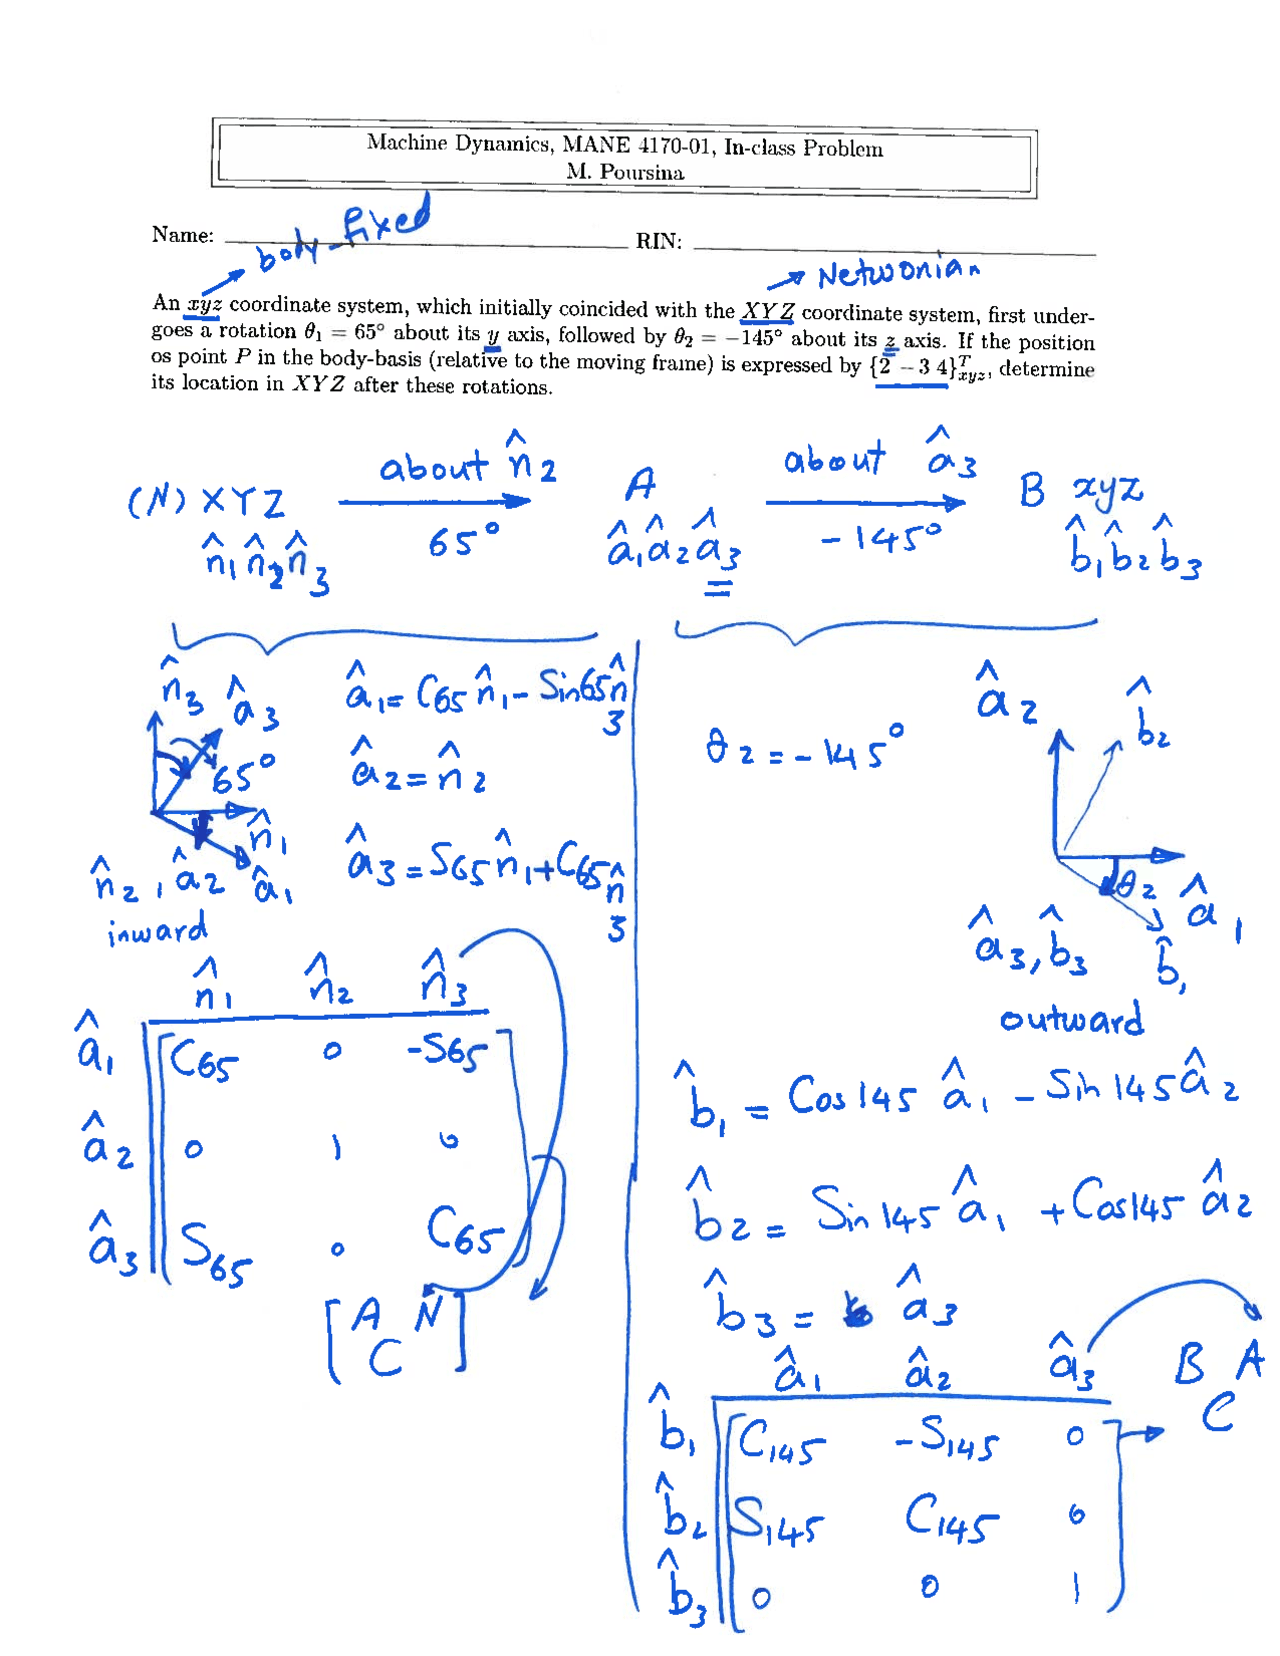 Machine Dynamics, MANE 4170-01, In-class Problem
M. Poursina
Name: body-fixed RIN:
Netwonian
An xyz coordinate system, which initially coincided with the XYZ coordinate system, first under-
goes a rotation θ₁ = 65° about its y axis, followed by θ₂ = −145° about its z axis. If the position
os point P in the body-basis (relative to the moving frame) is expressed by {2 − 3 4}ᵀxyz, determine
its location in XYZ after these rotations.
(N) XYZ about n̂2 65° A about â3 -145° B xyz
n̂1 n̂2 n̂3 â1 â2 â3 b̂1 b̂2 b̂3
n̂3 â3
65°
n̂1
n̂2, â2 â1
inward
â1 = C65 n̂1 - Sin65 n̂3
â2 = n̂2
â3 = S65 n̂1 + C65 n̂3
n̂1 n̂2 n̂3
â1 C65 0 -S65
â2 0 1 0
â3 S65 0 C65
[A C N]
θ2 = -145°
â2 b̂2
θ2 â1
â3, b̂3 b̂1
outward
b̂1 = Cos145 â1 - Sin145 â2
b̂2 = Sin145 â1 + Cos145 â2
b̂3 = â3
â1 â2 â3 B C A
b̂1 C145 -S145 0
b̂2 S145 C145 0
b̂3 0 0 1